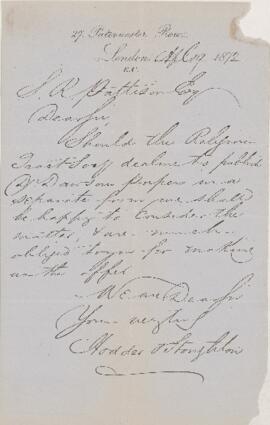 27, Paternoster Row.
London, Apl 9 1872
E.C.
S. R. Pattison Esq
Dear Sir,
Should the Religious
Tract Socy decline to publish
Dr Dawson's papers in a
separate form we should
be happy to consider the
matter, & are much
obliged to you for making
us the offer
We are Dear Sir
Yours very truly
Hodder & Stoughton